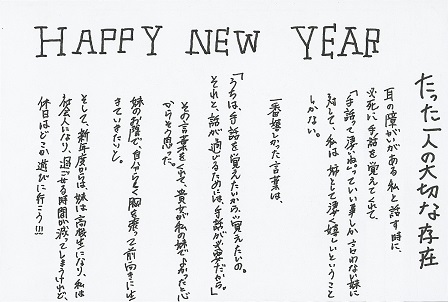 HAPPY NEW YEAR
たった一人の大切な存在
耳の障がいがある私と話す時に、
必死に手話を覚えてくれて、
「手話って凄いね」っていい事しか言わない妹に
対して、私は姉として凄く嬉しいということ
しかない。
一番嬉しかった言葉は、
「うちは、手話を覚えたいから覚えたいの。
それと、話が通じるためには、手話が必要だから。」
その言葉を出て、貴女が私の妹でよかったと心
からそう思った。
妹のお陰で、自分らしく胸を張って前向きに生
きていきたいと。
そして、新年度からは、妹は高校生になり、私は
社会人になり、過ごせる時間が減ってしまうけれど、
休日はどこか遊びに行こう!!!